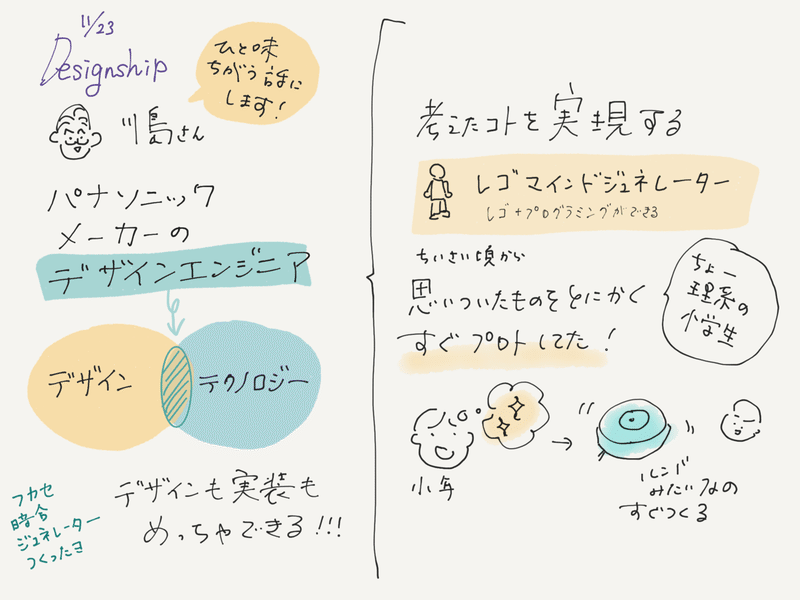 11/23
Designship
ひと味
ちがう話に
します!
川島さん
パナソニック
メーカーの
デザインエンジニア
デザイン
テクノロジー
デザインも実装も
めっちゃできる!!!
フカセ
暗合
ジェネレーター
つくったヨ
考えたコトを実現する
レゴマインドジェネレーター
レゴ+プログラミングができる
ちいさい頃から
思いついたものをとにかく
すぐプロトしてた!
ちょー
理系の
小学生
少年
ルンバ
みたいなの
すぐつくる